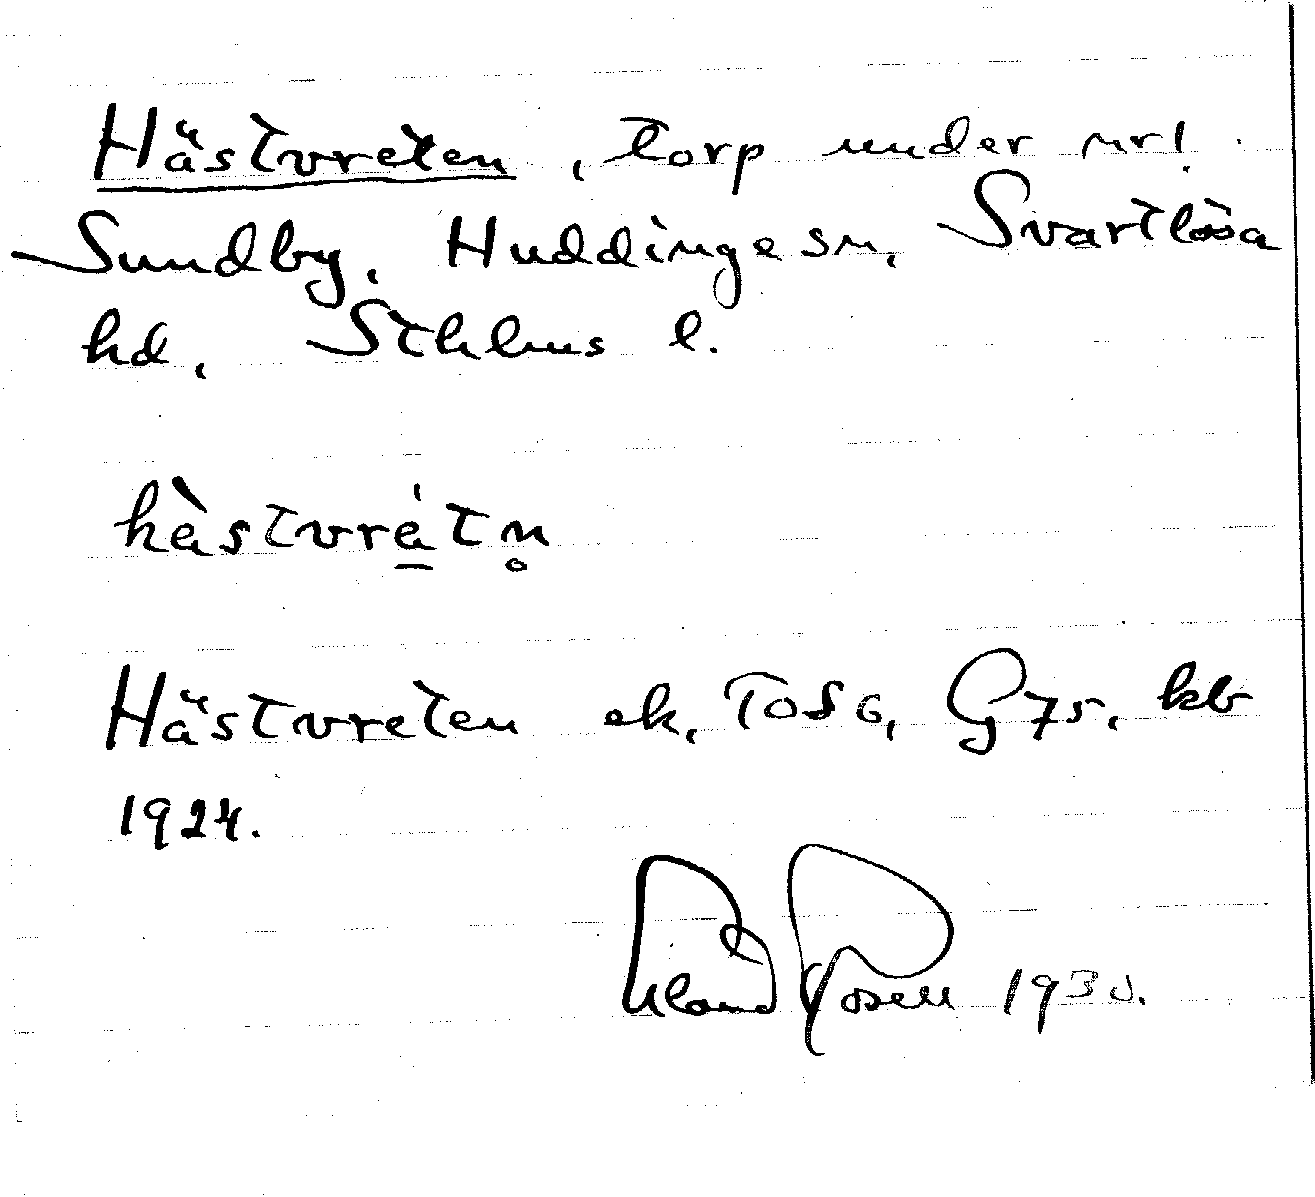 Hästvreten, torp under nr 1
Sundby, Huddinge sn, Svartlösa
hd, Sthlms l.
hàstvrätn̥
Hästvreten ek, TOSG, G75, kb
1924.
Åland Rosell 1930.